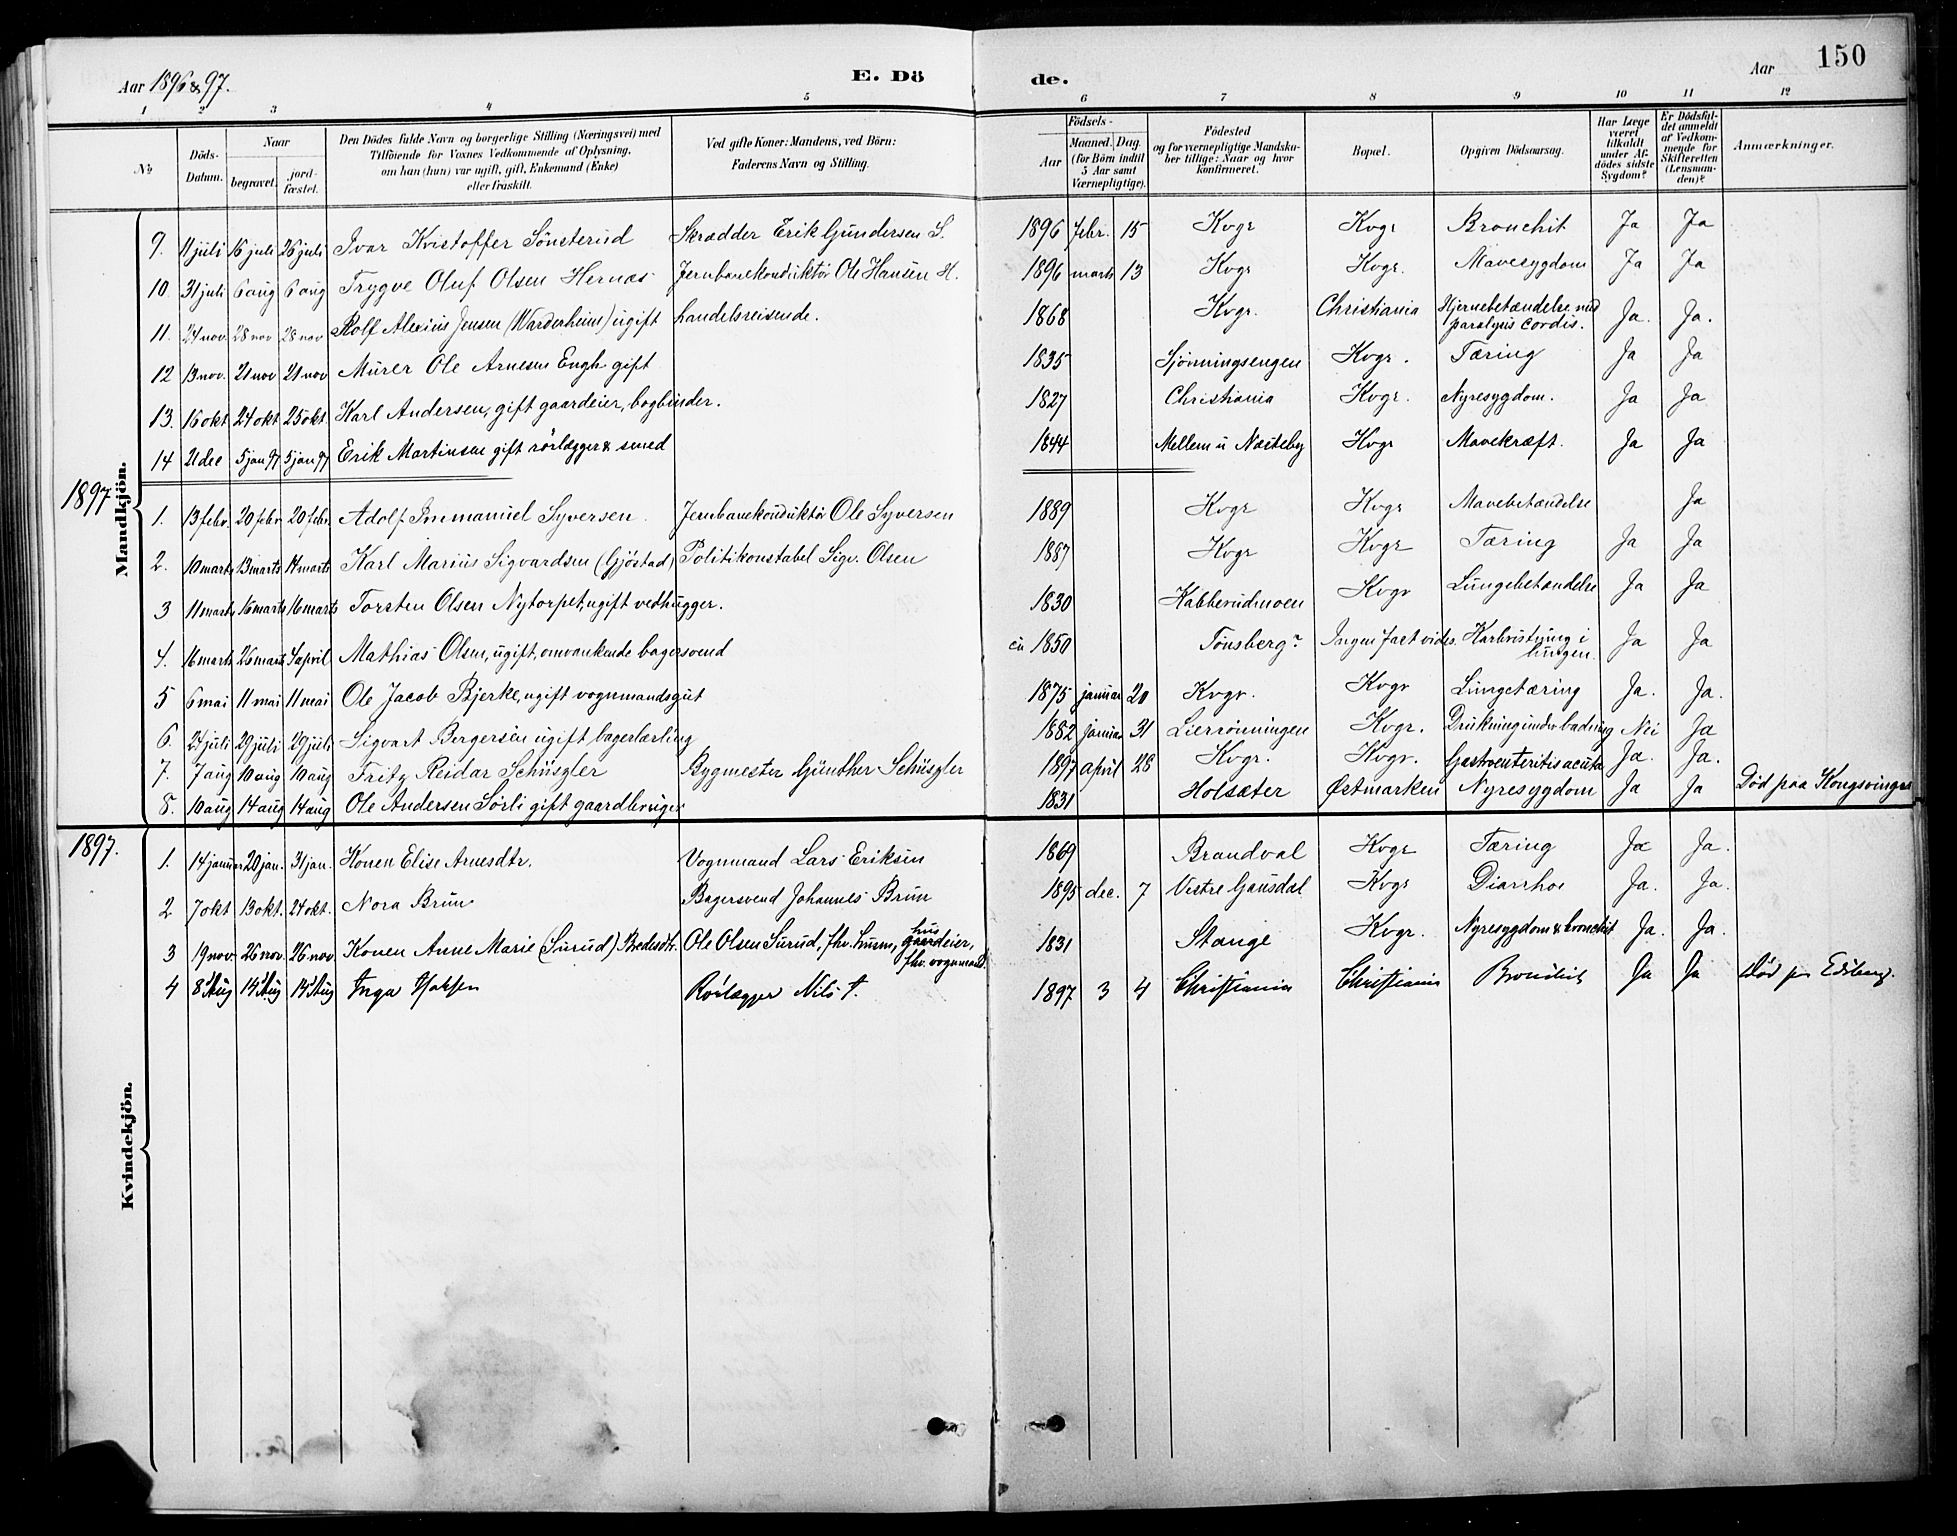 Aar 1896 & 97.
E. Dö
de.
Aar
150
1 2 3 4 5 6 7 8 9 10 11 12
No
Döds-
Datum.
Naar
begravet.
jord-
fæstet.
Den Dödes fulde Navn og borgerlige Stilling (Næringsvei) med
Tilföiende for Voxnes Vedkommende af Oplysning,
om han (hun) var ugift, gift, Enkemand (Enke)
eller fraskilt.
Ved gifte Koner: Mandens, ved Börn:
Faderens Navn og Stilling.
Födsels-
Aar
Maaned. Dag.
(for Börn indtil
5 Aar samt
Værnepligtige).
Födested
og for værnepligtige Mandsku-
ber tillige: Naar og hvor
konfirmeret.
Bopæl.
Opgiven Dödsaarsag.
Har Læge
været
tilkaldt
under Af-
dödes sidste
Sygdom?
Er Dödsfal-
det anmeldt
af Vedkom-
mende for
Skifteretten
(Lensman-
den)?
Anmærkninger.
Mandkjön.
9. 11 juli 16 juli 26 juli Ivar Kristoffer Sönsterud Skrædder Erik Gundersen S. 1896 febr. 15 Kvgr Kvgr Bronchit Ja Ja
10. 31 juli 6 aug 6 aug Trygve Oluf Olsen Hernæs Jernbanekonduktör Ole Hansen H. 1896 marts 13 Kvgr Kvgr. Mavesygdom Ja Ja
11. 24 nov 28 nov 28 nov Rolf Alexius Jensen (Warderheim) ugift handelsreisende. 1868 Kvgr. Christiania Hjernebetændelse med paralysis cordis. Ja. Ja.
12 13 nov. 21 nov 21 nov Murer Ole Arnesen Engh gift 1835 Sjönningsengen Kvgr. Tæring Ja Ja
13. 16 okt 24 okt 25 okt. Karl Andersen, gift gaardeier, bogbinder. 1827 Christiania Kvgr. Nyresygdom. Ja Ja
14 21 dec 5 jan 97 5 jan 97 Erik Martinsen gift rörlægger & smed 1844 Mellem u Næsteby Kvgr Mavekræft. Ja Ja
1897
1. 13 febr. 20 febr 20 febr. Adolf Immanuel Syversen. Jernbanekonduktör Ole Syversen 1889 Kvgr Kvgr Mavebetændelse Ja
2. 10 marts 13 marts 14 marts Karl Marius Sigvardsen (Gjöstad) Politikonstabel Sigv. Olsen 1887 Kvgr Kvgr Tæring Ja Ja
3 11 marts 16 marts 16 marts Torsten Olsen Nytorpet, ugift vedhugger. 1830 Kabberudmoen Kvgr Lungebetændelse Ja Ja
4. 16 marts 26 marts 4 april Mathias Olsen, ugift, omvankende bagersvend ca 1850 Tönsberg? Ingen fast vides. Karbristning i lungen. Ja Ja
5 6 mai 11 mai 11 mai Ole Jacob Bjerke, ugift vognmandsgut 1875 januar 20 Kvgr. Kvgr Lungetæring Ja. Ja.
6. 24 juli 29 juli 29 juli Sigvart Bergersen ugift bagerlærling 1882 januar 31 Lierrönningen Kvgr. Drukning under badning Nei Ja
7. 7 aug 10 aug 10 aug Fritz Reidar Schüszler Bygmester Günther Schüszler 1897 april 28 Kvgr. Kvgr. Gastroenteritis acuta Ja. Ja.
8. 10 aug 14 aug 14 aug Ole Andersen Sörli gift gaardbruger 1831 Holsæter Østmarken Nyresygdom Ja Ja Död paa Kongsvinger
1897.
Kvindekjön.
1. 14 januar 20 jan. 31 jan. Konen Elise Arnesdtr. Vognmand Lars Eriksen 1869 Brandval Kvgr Tæring Ja Ja.
2 7 okt 13 okt. 24 okt. Nora Brun Bagersvend Johannes Brun 1895 dec. 7 Vestre Gausdal Kvgr Diarrhoe Ja. Ja.
3 19 nov 26 nov. 26 nov Konen Anne Marie (Surud) Pedersdtr. Ole Olsen Surud, fhv. husm, hus gaardeier, fhv. vognmand. 1831 Stange Kvgr. Nyresygdom & bronchit Ja. Ja.
4 8 Aug 14 Aug 14 Aug Inga Rörlægger Nils 1897 3 4 Christiania Christiania Bronchit Ja Ja Död